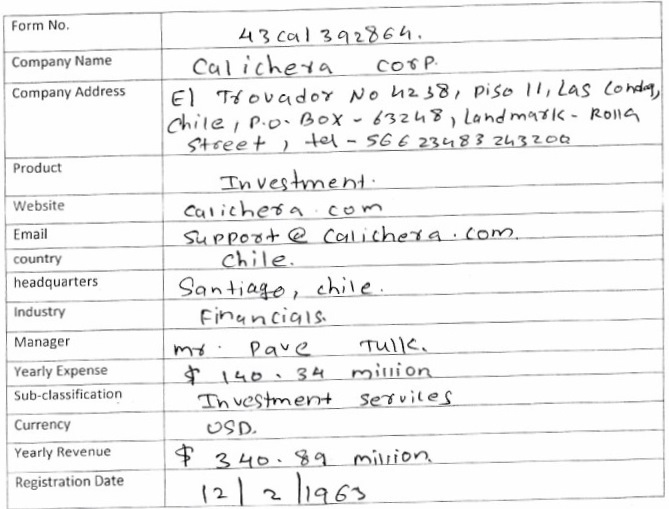 Form No. 43cal392864.
Company Name Calichera corp.
Company Address El Trovador No 4238, piso 11, Las Condes,
Chile, P.O. Box - 63248, Landmark - Rolla
Street, tel - 566 23483 243200
Product Investment.
Website calichera.com
Email support@calichera.com.
country Chile.
headquarters Santiago, chile.
Industry Financials.
Manager mr. Pave Tullc.
Yearly Expense $ 140.34 million
Sub-classification Investment services
Currency USD.
Yearly Revenue $ 340.89 million.
Registration Date 12/2/1963